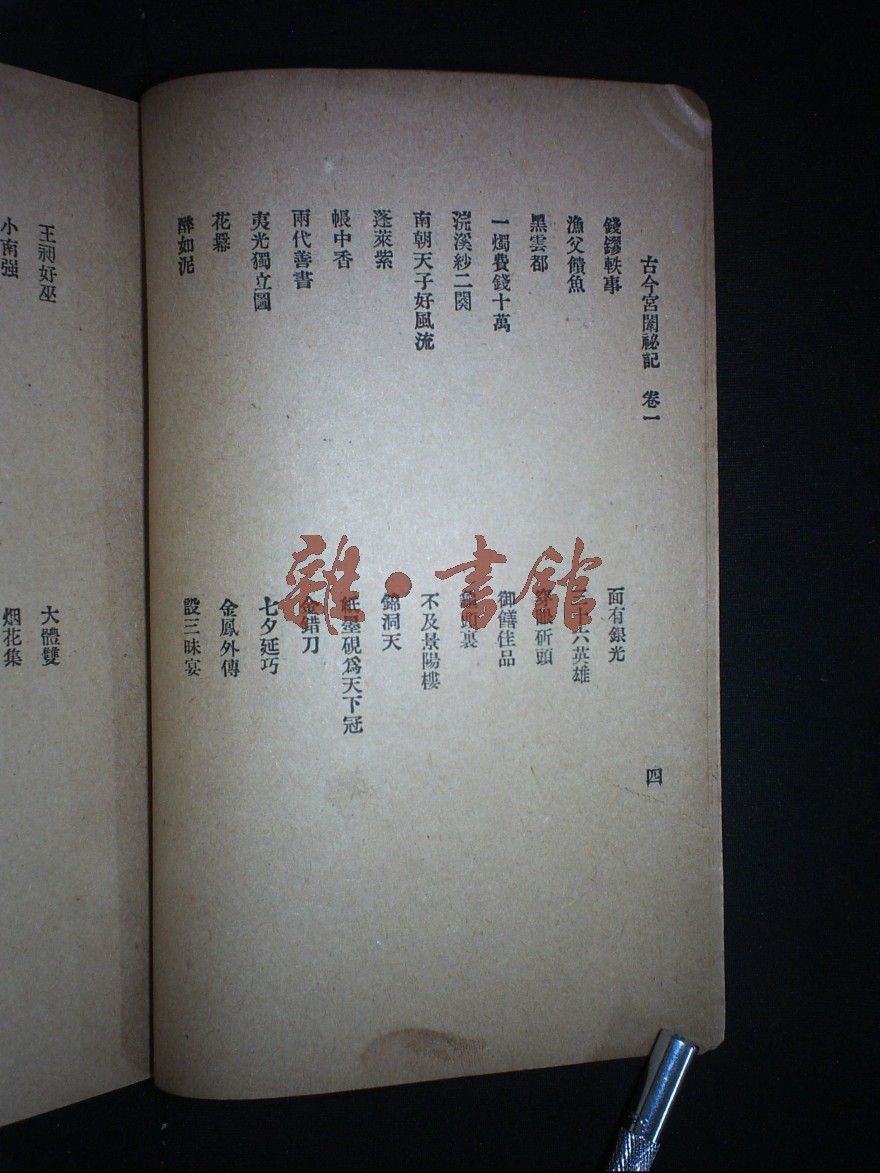 古今宮闈祕記 卷一 四
錢鏐軼事
面有銀光
漁父饋魚
三十六英雄
黑雲都
穿眼斫頭
一燭費錢十萬
御饍佳品
浣溪紗二闋
頭裹
南朝天子好風流
不及景陽樓
蓬萊紫
錦洞天
帳中香
紙墨硯爲天下冠
兩代善書
金錯刀
夷光獨立圖
七夕延巧
花幕
金鳳外傳
醉如泥
設三昧宴
王昶好巫
大體雙
小南强
烟花集
雜·書館